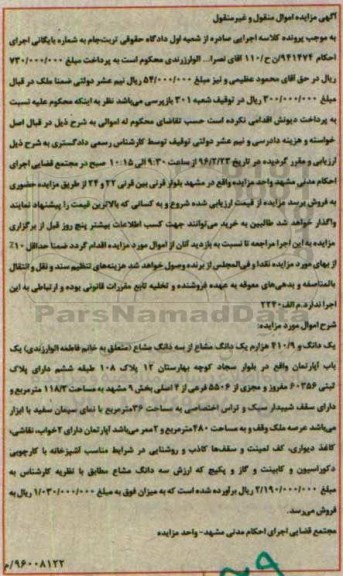 آگهی مزایده اموال منقول و غیرمنقول
به موجب پرونده کلاسه اجرایی صادره از شعبه اول دادگاه حقوقی تربت‌جام به شماره بایگانی اجرای
احکام ۹۴۱۴۷۴/ن ح/۱۱۰ آقای نصرا... الوارزرندی محکوم است به پرداخت مبلغ ۷۳۰/۰۰۰/۰۰۰
ریال در حق آقای محمود عظیمی و نیز مبلغ ۵۴/۰۰۰/۰۰۰ ریال نیم عشر دولتی ضمنا ملک در قبال
مبلغ ۳۰۰/۰۰۰/۰۰۰ ریال در توقیف شعبه ۳۰۱ بازپرسی می‌باشد نظر به اینکه محکوم علیه نسبت
به پرداخت دیونش اقدامی نکرده است حسب تقاضای محکوم له اموالی به شرح ذیل در قبال اصل
خواسته و هزینه دادرسی و نیم عشر دولتی توقیف توسط کارشناس رسمی دادگستری به شرح ذیل
ارزیابی و مقرر گردیده در تاریخ ۹۶/۲/۲۳ از ساعت ۹:۳۰ الی ۱۰:۱۵ صبح در مجتمع قضایی اجرای
احکام مدنی مشهد واحد مزایده واقع در مشهد بلوار قرنی بین قرنی ۲۲ و ۲۴ از طریق مزایده حضوری
به فروش برسد مزایده از قیمت ارزیابی شده شروع و به کسانی که بالاترین قیمت را پیشنهاد نمایند
واگذار خواهد شد طالبین به خرید می‌توانند جهت کسب اطلاعات بیشتر پنج روز قبل از برگزاری
مزایده به این اجرا مراجعه تا نسبت به بازدید آنان از اموال مورد مزایده اقدام گردد ضمنا حداقل ۱۰٪
از بهای مورد مزایده نقدا و فی‌المجلس از برنده وصول خواهد شد هزینه‌های تنظیم سند و نقل و انتقال
بالمناصفه و بدهی‌های معوقه به عهده فروشنده و تخلیه تابع مقررات قانونی بوده و ارتباطی به این
اجرا ندارد. م الف ۲۲۴۰
ParsNamadData
شرح اموال مورد مزایده:
یک دانگ و ۴۱۰/۹ هزارم یک دانگ مشاع از سه دانگ مشاع (متعلق به خانم فاطمه الوارزندی) یک
باب آپارتمان واقع در بلوار سجاد کوچه بهارستان ۱۲ پلاک ۱۰۸ طبقه ششم دارای پلاک
ثبتی ۶۰۳۵۶ مفروز و مجزی از ۵۵۰۶ فرعی از ۴ اصلی بخش ۹ مشهد به مساحت ۱۱۸/۳ مترمربع و
دارای سقف شیبدار سبک و تراس اختصاصی به مساحت ۳۶مترمربع با نمای سیمان سفید با ابزار
می‌باشد عرصه ملک وقف و به مساحت ۴۸۰مترمربع و ۲ممر می‌باشد آپارتمان دارای ۲خواب، نقاشی،
کاغذ دیواری، کف لمینت و سقف‌ها کاذب و روشنایی در شرایط مناسب آشپزخانه با کارچوبی
دکوراسیون و کابینت و گاز و پکیج که ارزش سه دانگ مشاع مطابق با نظریه کارشناس به
مبلغ ۲/۱۹۰/۰۰۰/۰۰۰ ریال برآورده شده است که به میزان فوق به مبلغ ۱/۰۳۰/۰۰۰/۰۰۰ ریال به
فروش می‌رسد.
مجتمع قضایی اجرای احکام مدنی مشهد- واحد مزایده
۹۶۰۰۸۱۲۲/م